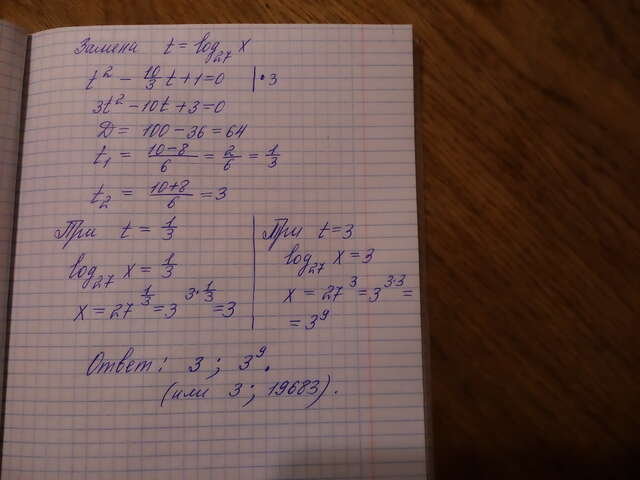 Замена t = log₂₇ x
t² - 10/3 t + 1 = 0 | • 3
3t² - 10t + 3 = 0
D = 100 - 36 = 64
t₁ = (10-8)/6 = 2/6 = 1/3
t₂ = (10+8)/6 = 3
При t = 1/3
log₂₇ x = 1/3
x = 27^(1/3) = 3^(3•1/3) = 3
При t = 3
log₂₇ x = 3
x = 27³ = 3^(3•3) =
= 3⁹
Ответ: 3 ; 3⁹.
(или 3 ; 19683).